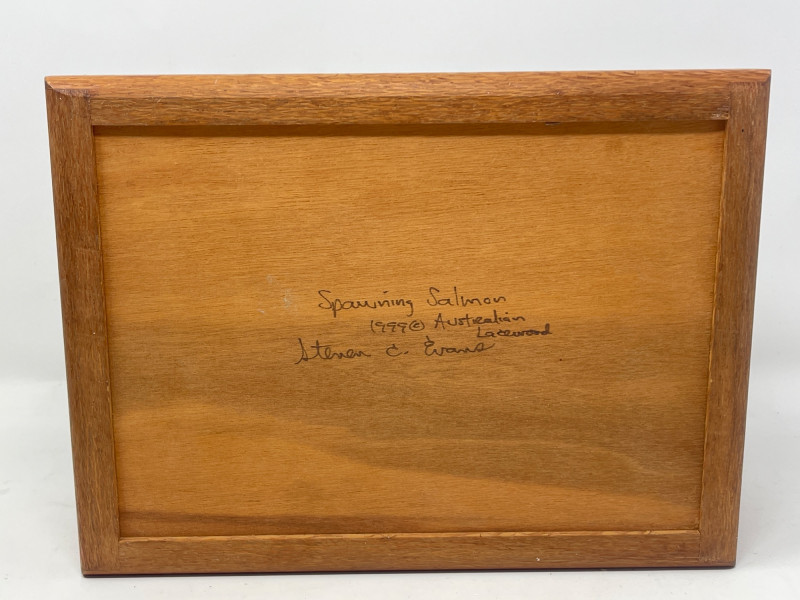 Spawning Salmon
1999© Australian
Lacewood
Steven C. Evans